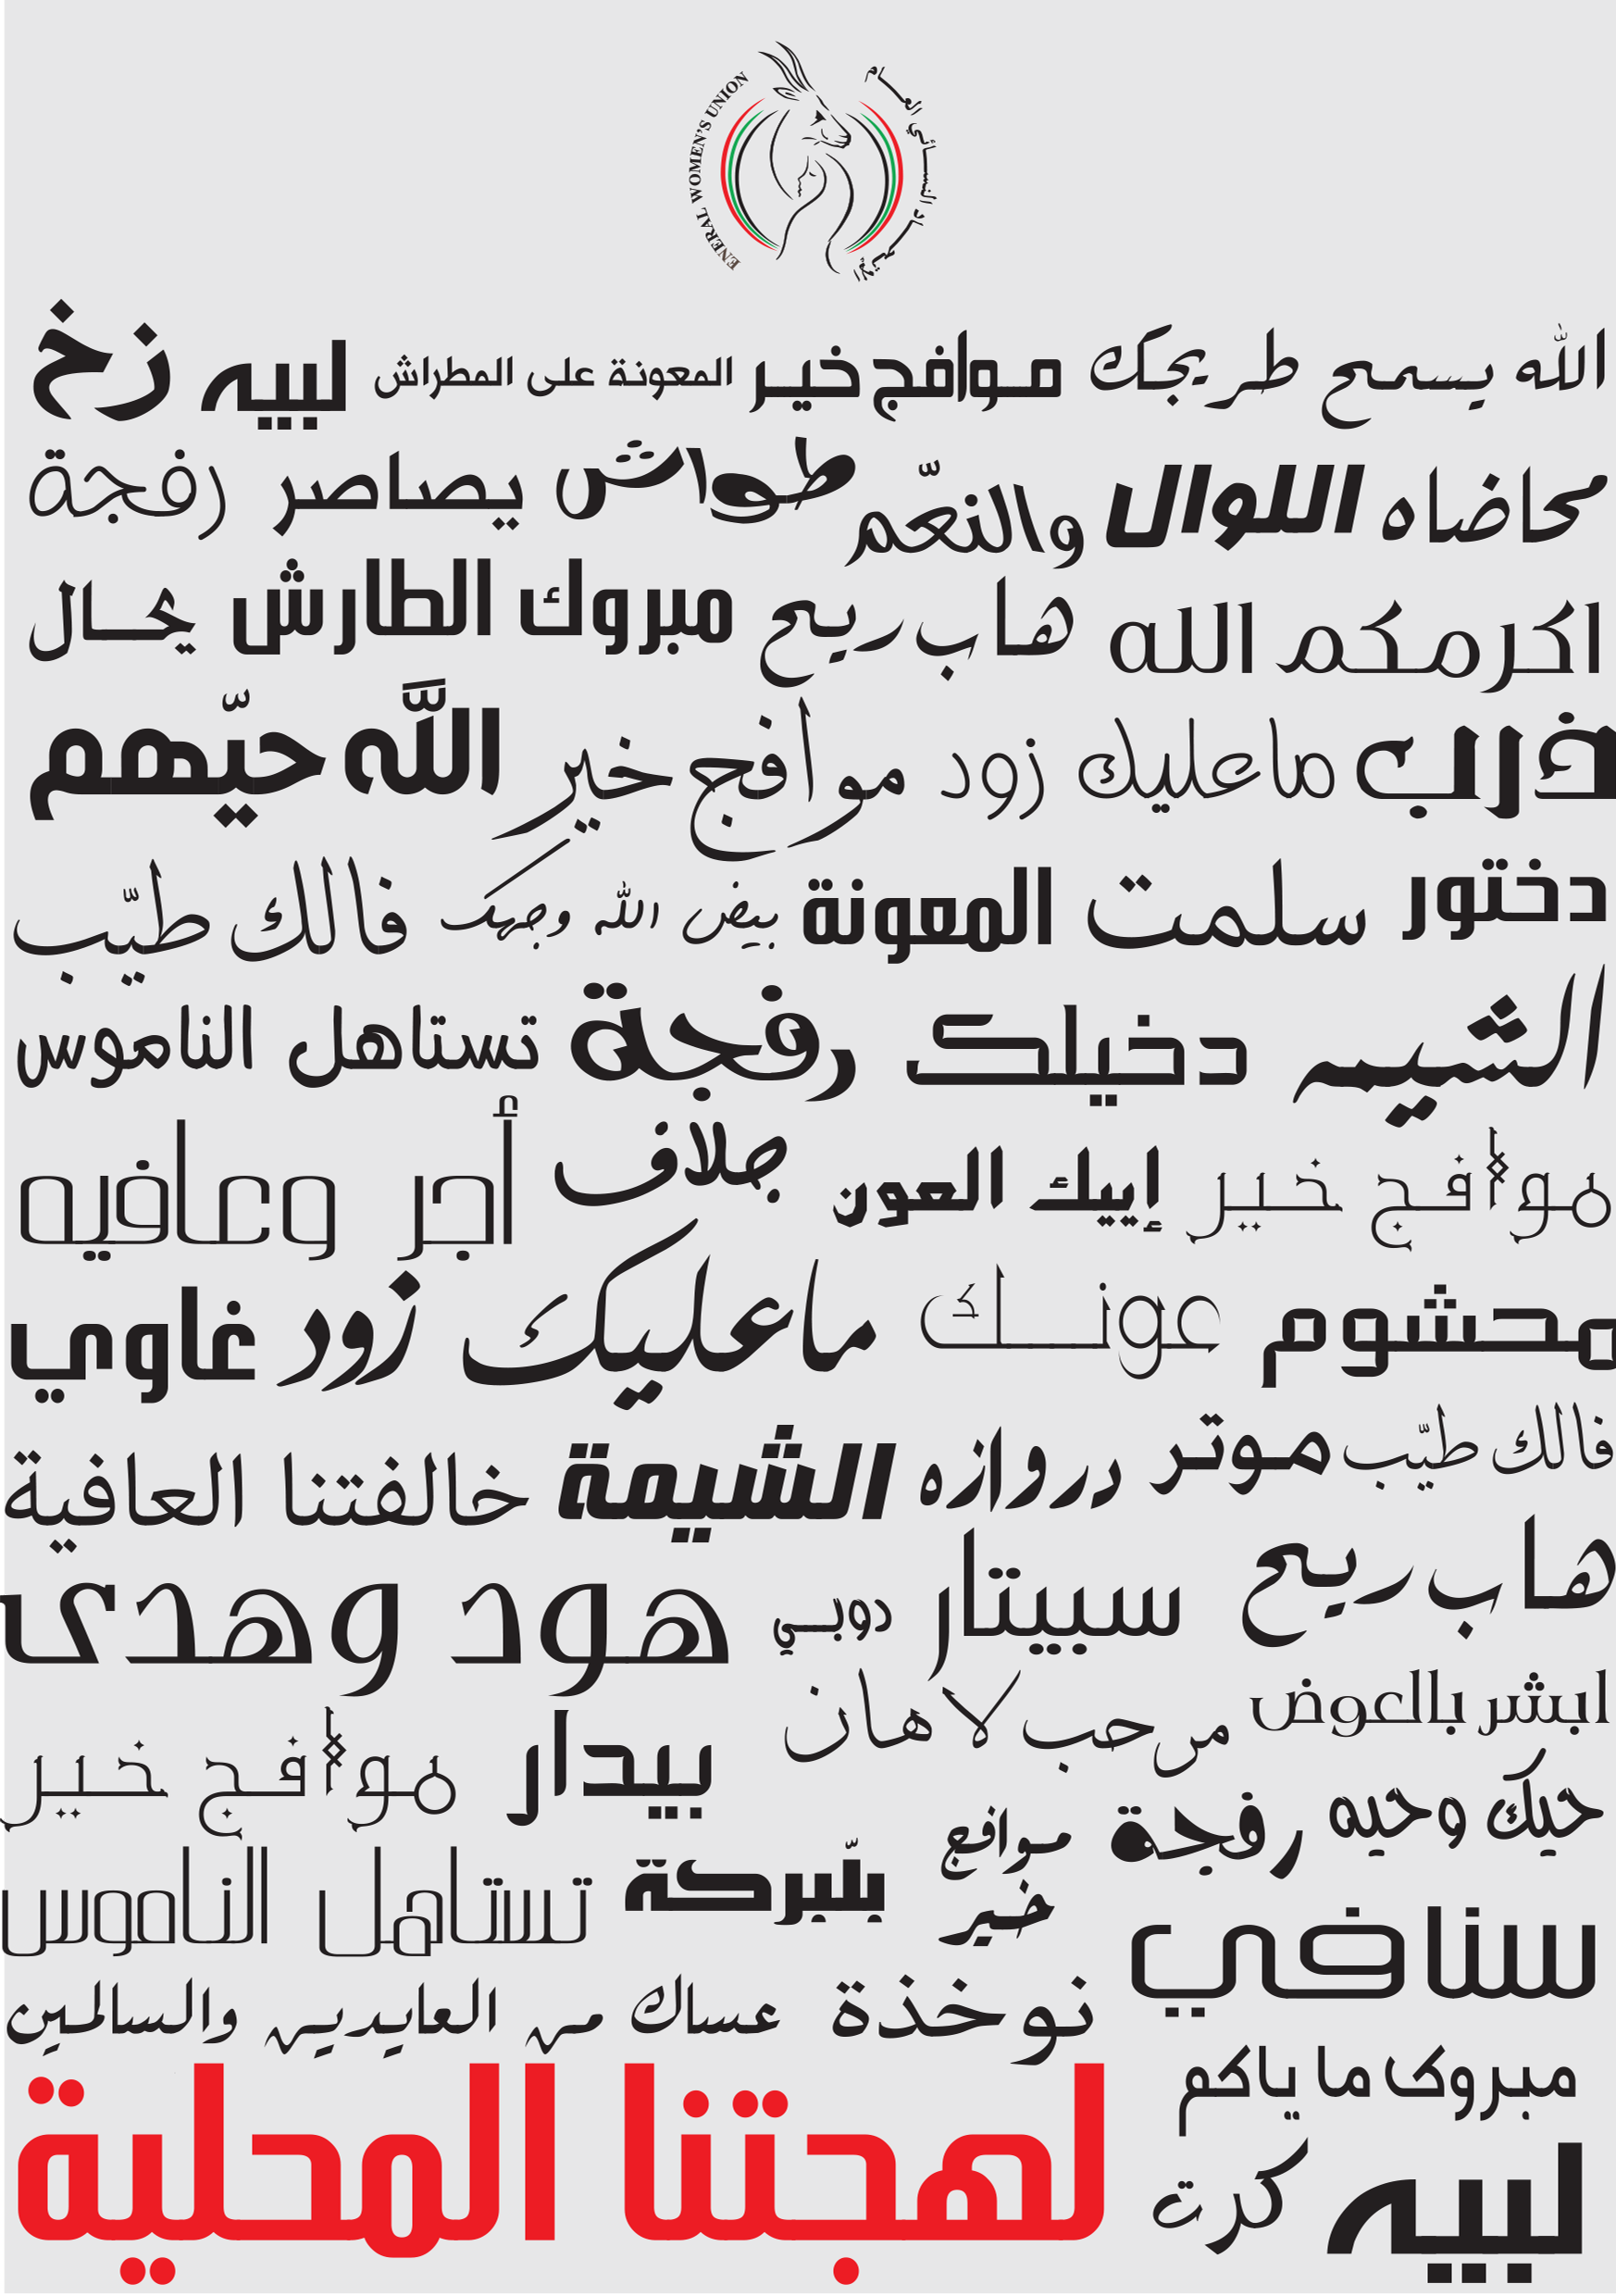 ENERAL WOMEN'S UNION
الإتحاد النسائي العام
الله يسمح طريجك موافج خير المعونة على المطراش لبيه زخ
محاضاه اللوال والنعّم طواش يصاصر رفجة
اكرمكم الله هاب ريح مبروك الطارش يحال
ذرب ماعليك زود موافج خير الله حيّهم
دختور سلمت المعونة بيض الله وجهك فالك طيّب
الشيمه دخيلك رفجة تستاهل الناموس
موافج خير إييك العون جلاف أجر وعافيه
محشوم عونك ماعليك زود غاوي
فالك طيّب موتر دروازه الشيمة خالفتنا العافية
هاب ريح سبيتار دوبي هود وهدى
ابشر بالعوض مرحب لاهان بيدار موافج خير
حيك وحيه رفجة موافج خير بلبركة تستاهل الناموس
سنافي نوخذة عساك من العايدين والسالمين
مبروك ما ياكم
لبيه كرت
لهجتنا المحلية